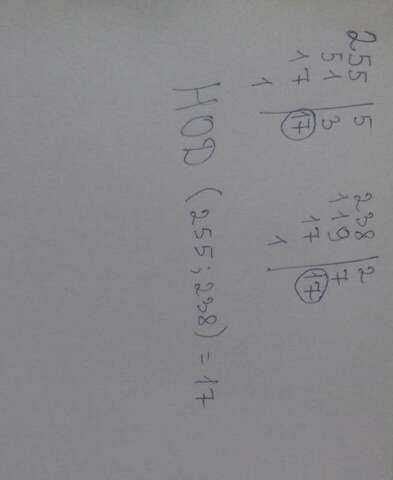 255 | 5    238 | 2
51 | 3    119 | 7
17 | 17    17 | 17
1 |    1 |
НОД (255; 238) = 17